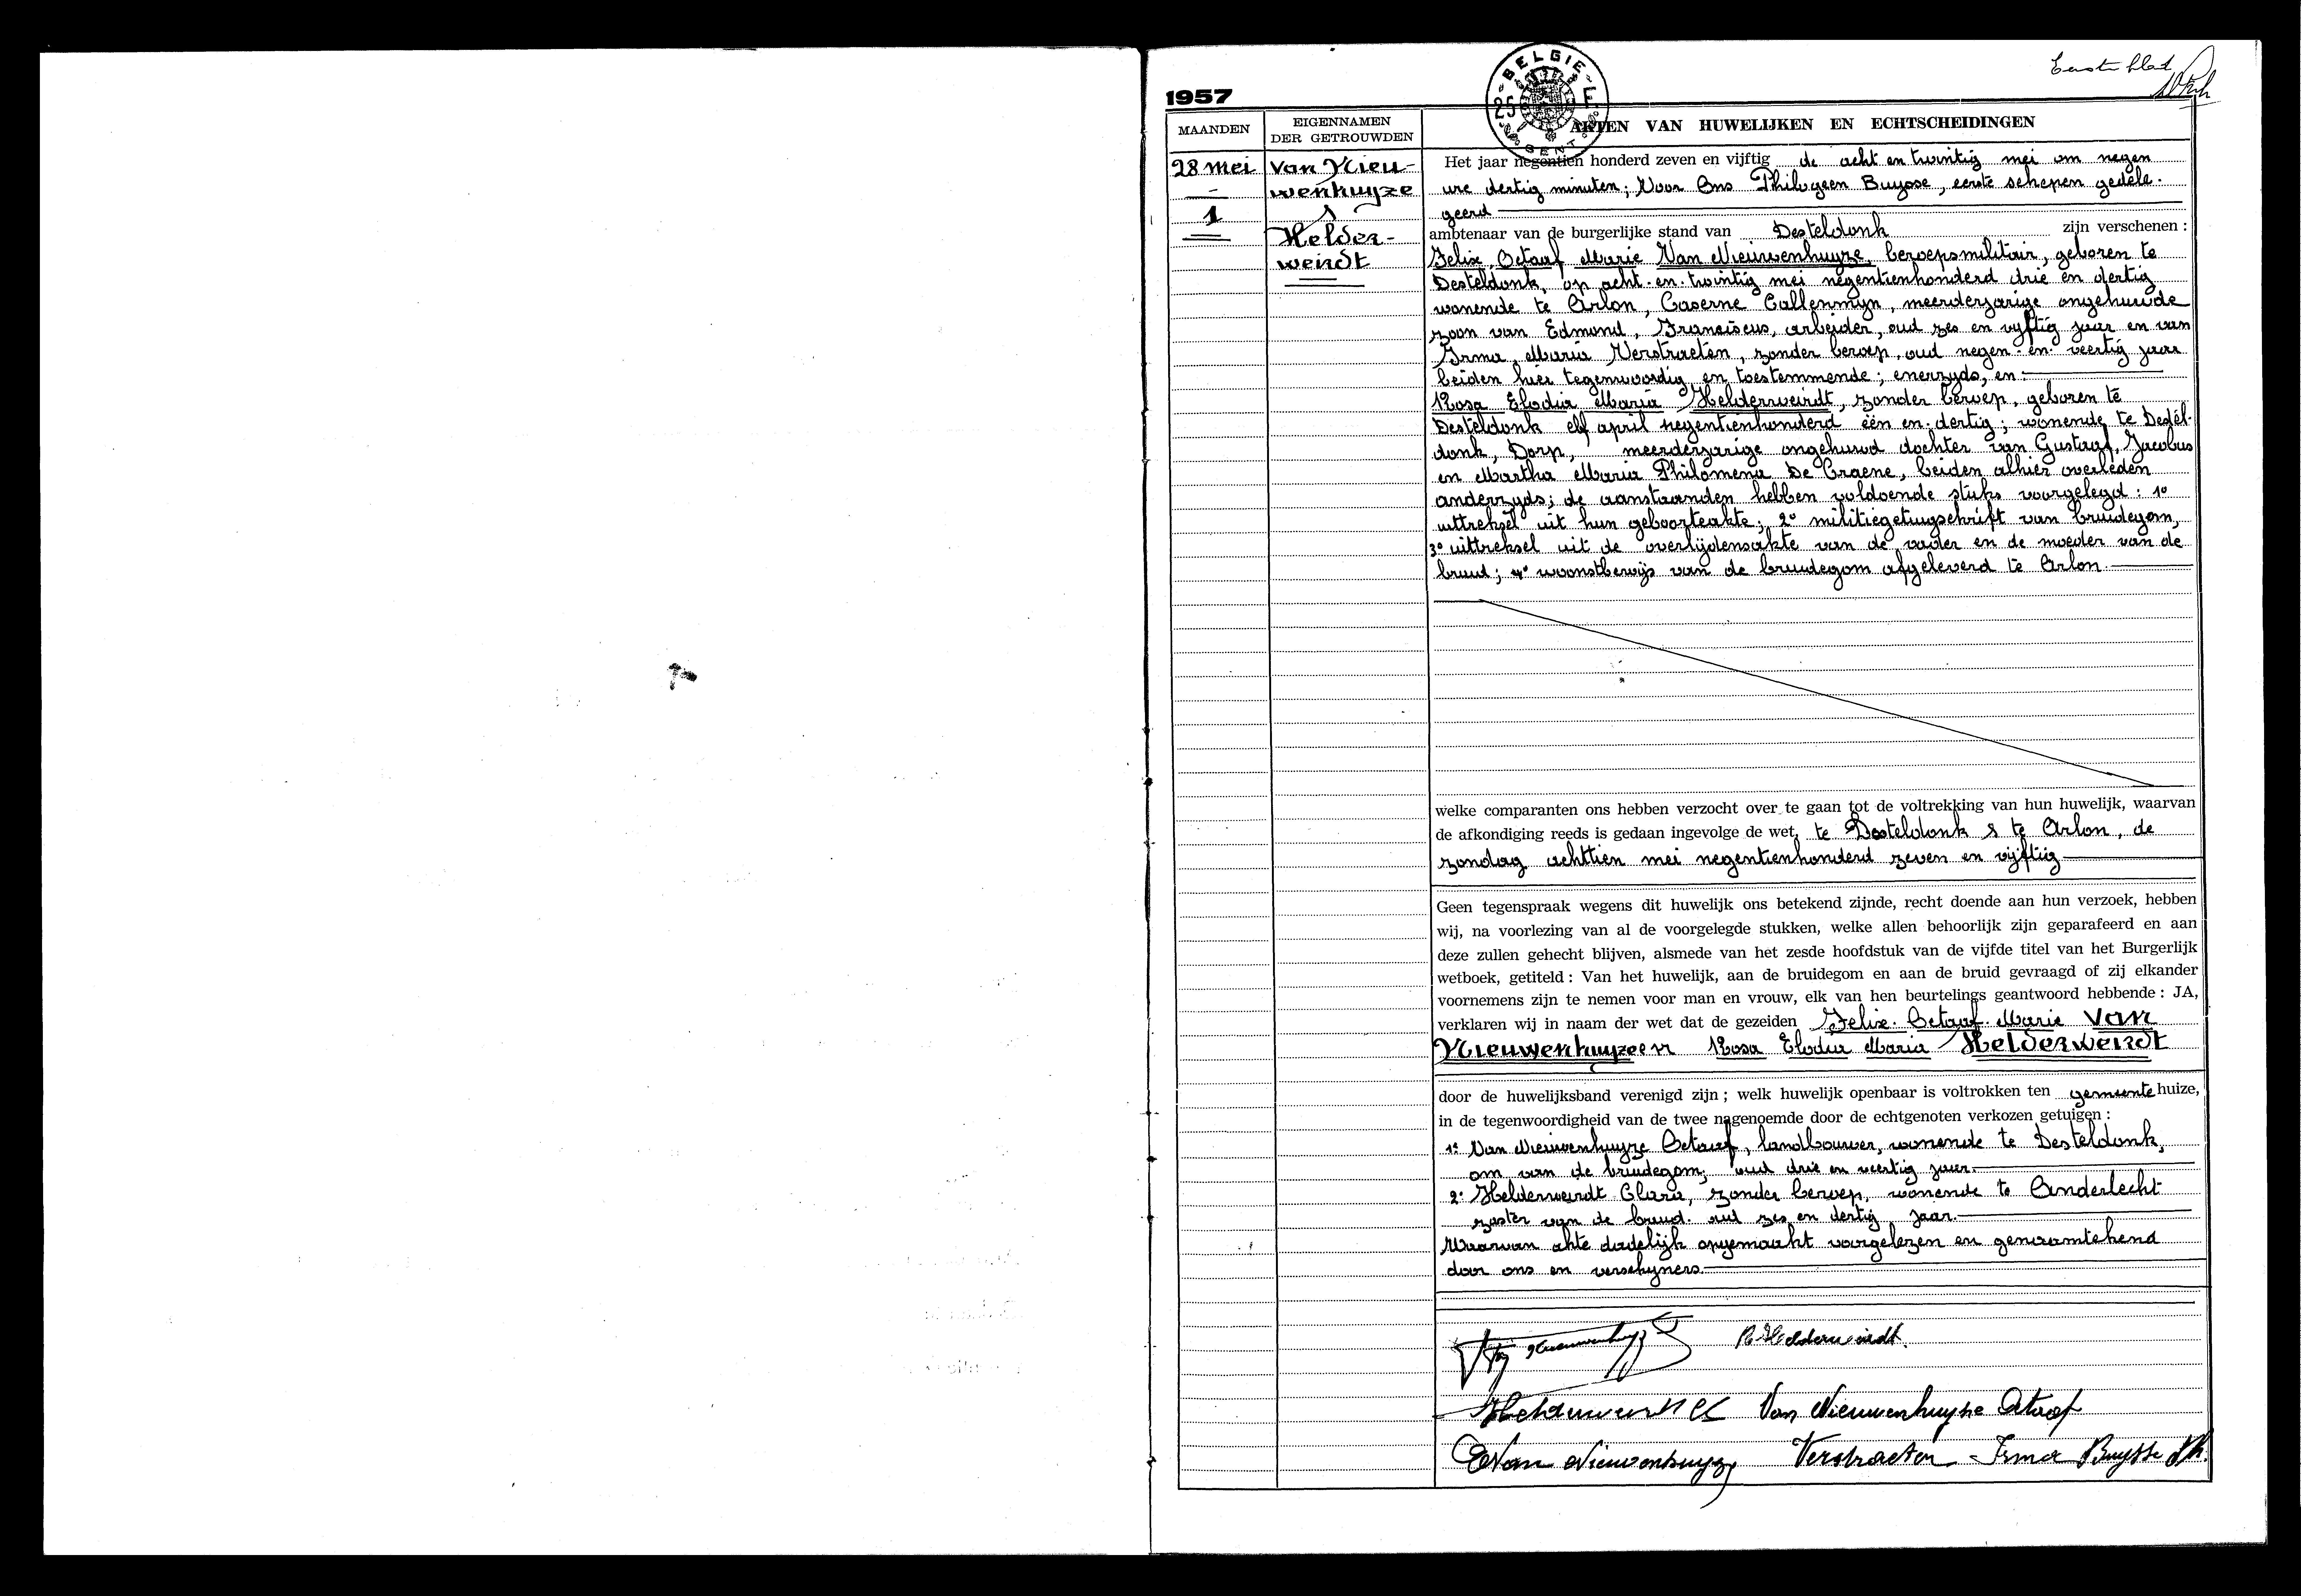 Eerste blad
1957
BELGIE
25 F
GENT
MAANDEN
EIGENNAMEN
DER GETROUWDEN
AKTEN VAN HUWELIJKEN EN ECHTSCHEIDINGEN
28 mei
1
Van Nieu-
wenhuyze
&
Helder-
weirdt
Het jaar negentien honderd zeven en vijftig de acht en twintig mei om negen
ure dertig minuten; Voor Ons Philogeen Buysse, eerste schepen gedele-
geerd
ambtenaar van de burgerlijke stand van Desteldonk zijn verschenen :
Felix, Octaaf Marie Van Nieuwenhuyze, beroepsmilitair, geboren te
Desteldonk, op acht-en-twintig mei negentienhonderd drie en dertig
wonende te Arlon, Caserne Callenmyn, meerderjarige ongehuwde
zoon van Edmond, Franciscus, arbeider, oud zes en vyftig jaar en van
Irma, Maria Verstraeten, zonder beroep, oud negen-en-veertig jaar
beiden hier tegenwoordig en toestemmende; enerzyds, en
Rosa Elodia Maria Helderweirdt, zonder beroep, geboren te
Desteldonk elf april negentienhonderd één en dertig; wonende te Destel-
donk, Dorp, meerderjarige ongehuwd dochter van Gustaaf, Jacobus
en Martha Maria Philomena De Craene, beiden alhier overleden
anderzyds; de aanstaanden hebben voldoende stuks voorgelegd : 1°
uittreksel uit hun geboorteakte; 2° militiegetuigschrift van bruidegom,
3° uittreksel uit de overlijdensakte van de vader en de moeder van de
bruid; 4° woonstbewijs van de bruidegom afgeleverd te Arlon.
welke comparanten ons hebben verzocht over te gaan tot de voltrekking van hun huwelijk, waarvan
de afkondiging reeds is gedaan ingevolge de wet, te Desteldonk & te Arlon, de
zondag achttien mei negentienhonderd zeven en vijftig
Geen tegenspraak wegens dit huwelijk ons betekend zijnde, recht doende aan hun verzoek, hebben
wij, na voorlezing van al de voorgelegde stukken, welke allen behoorlijk zijn geparafeerd en aan
deze zullen gehecht blijven, alsmede van het zesde hoofdstuk van de vijfde titel van het Burgerlijk
wetboek, getiteld : Van het huwelijk, aan de bruidegom en aan de bruid gevraagd of zij elkander
voornemens zijn te nemen voor man en vrouw, elk van hen beurtelings geantwoord hebbende : JA,
verklaren wij in naam der wet dat de gezeiden Felix. Octaaf. Marie Van
Nieuwenhuyze en Rosa Elodia Maria Helderweirdt
door de huwelijksband verenigd zijn ; welk huwelijk openbaar is voltrokken ten gemeente huize,
in de tegenwoordigheid van de twee nagenoemde door de echtgenoten verkozen getuigen :
1° Van Nieuwenhuyze Octaaf, landbouwer, wonende te Desteldonk,
om van de bruidegom, oud drie en veertig jaar.
2° Helderweirdt Clara, zonder beroep, wonende te Anderlecht
zuster van de bruid. oud zes en dertig jaar.
Waarvan akte dadelijk opgemaakt voorgelezen en genaamtekend
door ons en verschyners.
R. Helderweirdt.
Van Nieuwenhuyse Octaaf
E Van Nieuwenhuyze Verstraeten Irma Buysse Ph.